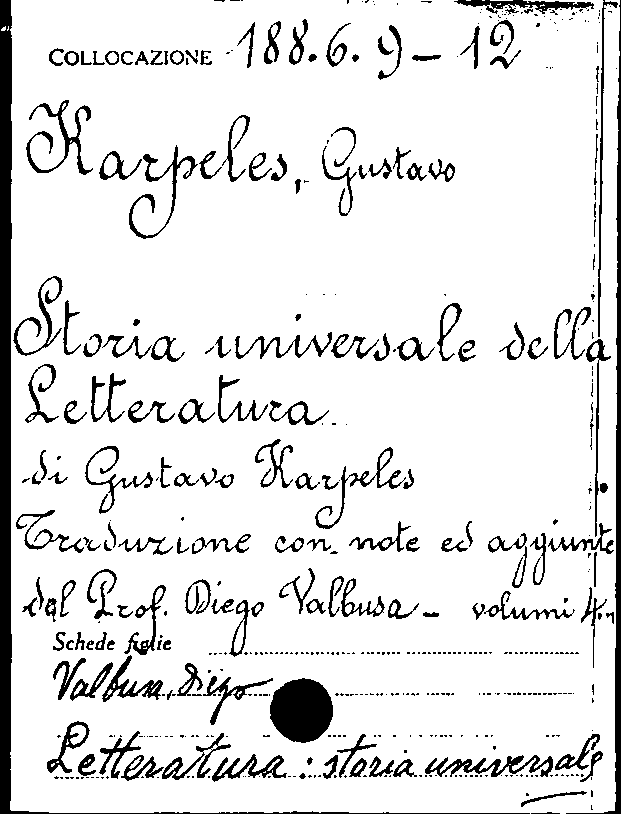 COLLOCAZIONE 188.6.9-12
Karpeles, Gustavo
Storia universale della
Letteratura
di Gustavo Karpeles
Traduzione con note ed aggiunte
dal Prof. Diego Valbusa - volumi 4.
Schede figlie
Valbusa, Diego
Letteratura: storia universale